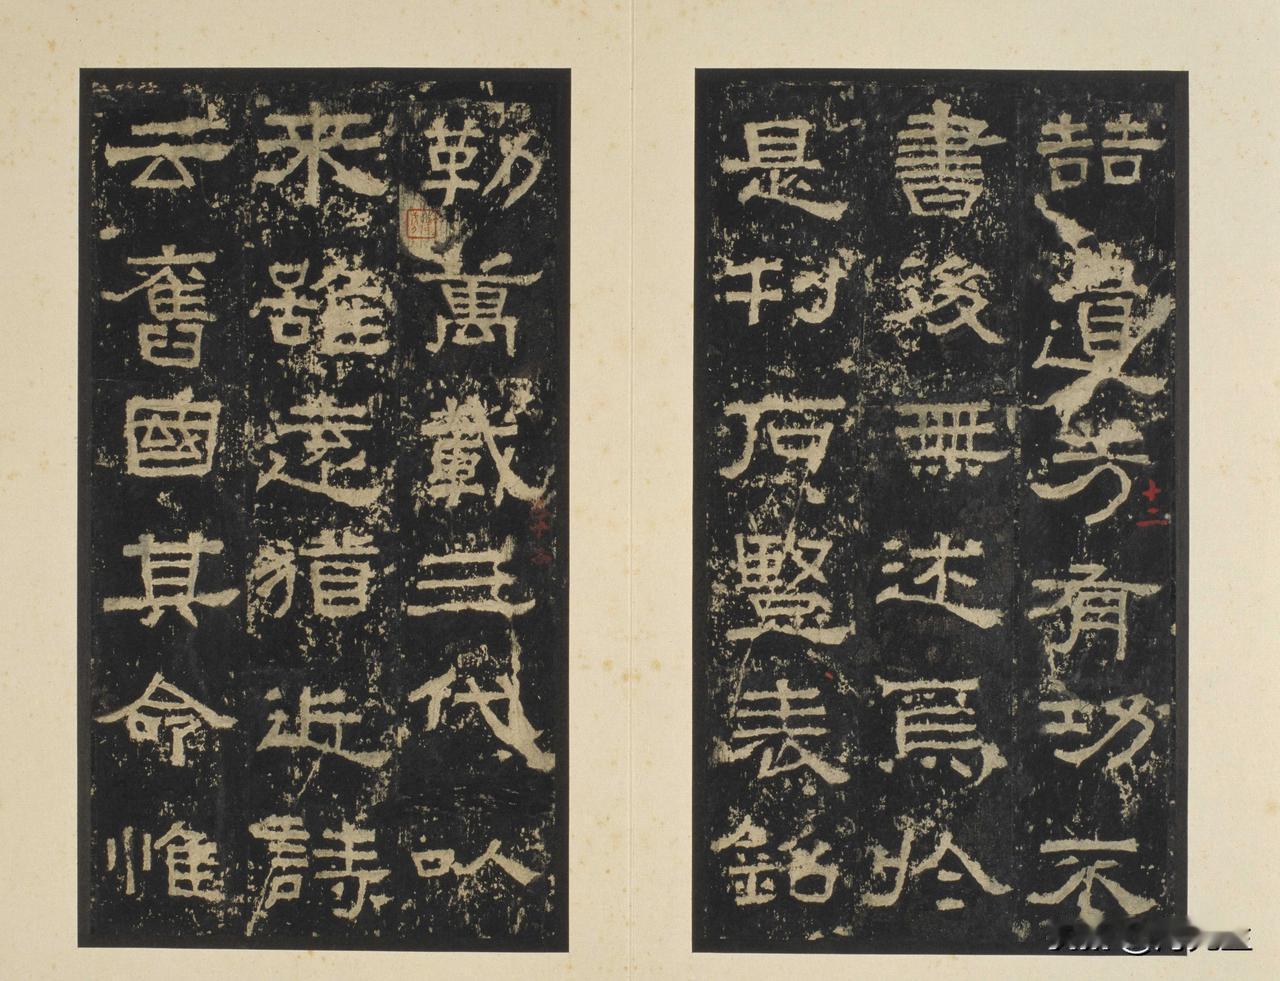 喆遺芳有功不
書後無述焉於
是刊石竪表銘
勒萬載三代以
来雖遠猶近詩
云舊國其命惟
十二